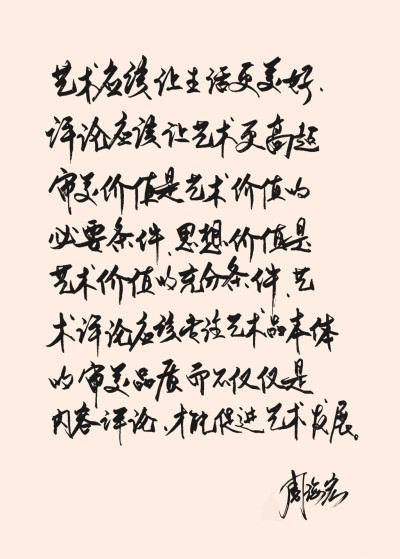 艺术应该让生活更美好、
评论应该让艺术更高超
审美价值是艺术价值的
必要条件、思想价值是
艺术价值的充分条件、艺
术评论应该专注艺术品本体
的审美品质而不仅仅是
内容评论、才能促进艺术发展。
周海宏